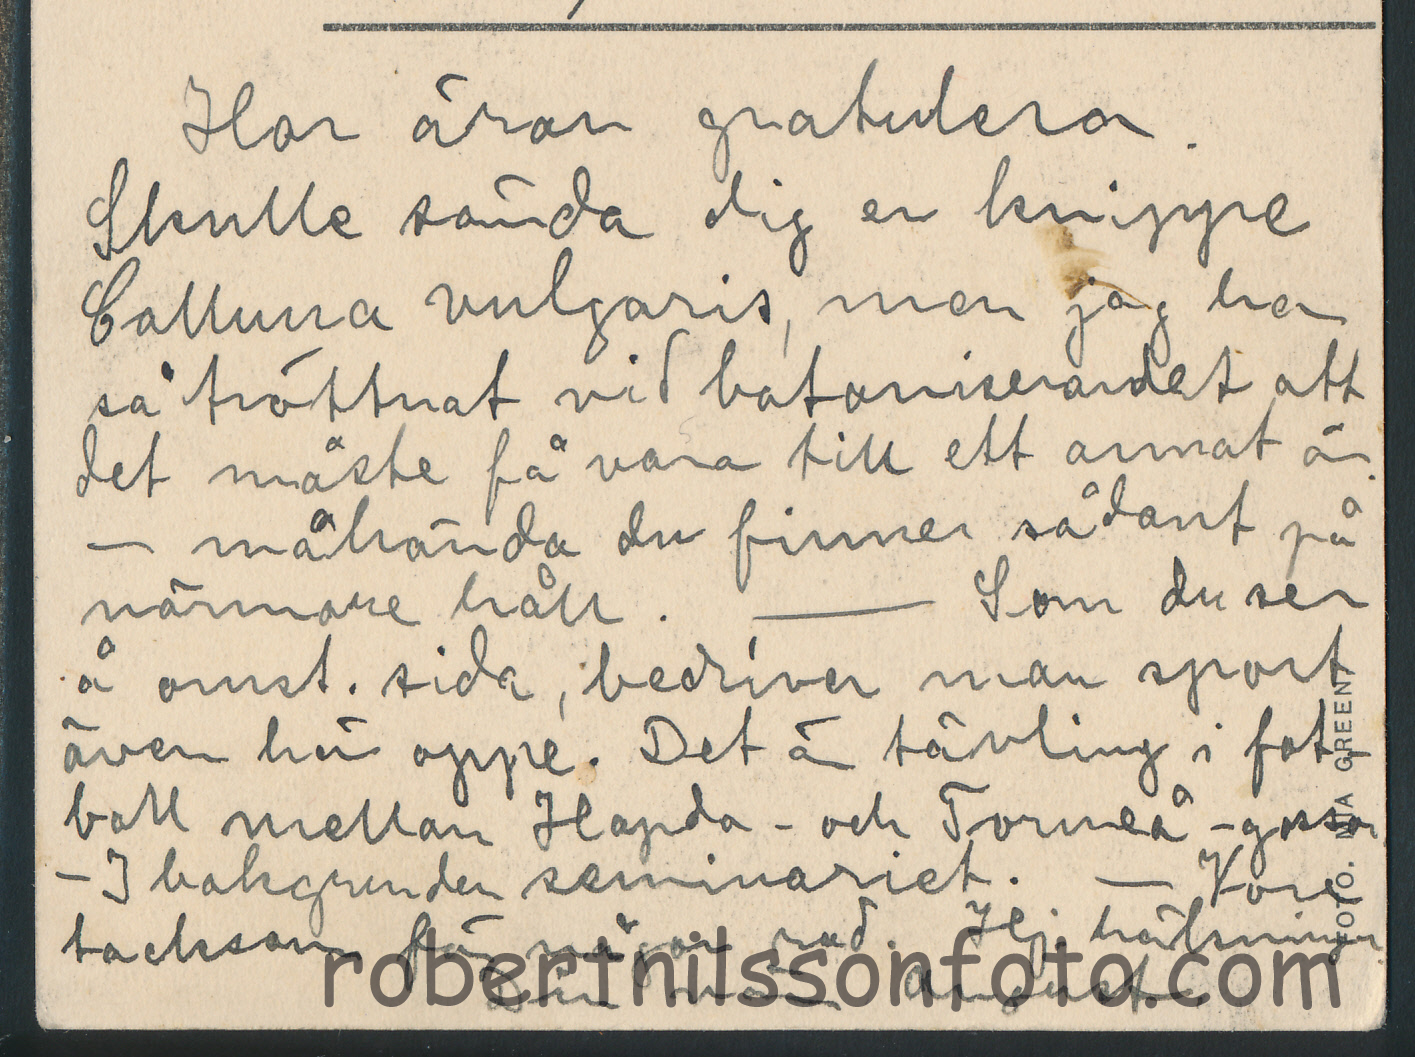 Har äran gratulera.
Skulle sända dig en knippe
Calluna vulgaris, men jag har
så tröttnat vid bataniserandet att
det måste få vara till ett annat år.
— måhända du finner sådant på
närmare håll. — Som du ser
å omst. sida, bedriver man sport
även här oppe. Det är tävling i fot-
boll mellan Hapda- och Torneå-gossar
- I bakgrunden seminariet. — Vore
tacksam för någon rad. Hj. hälsningar
Din vän August
FOTO. MIA GREEN
robertnilssonfoto.com